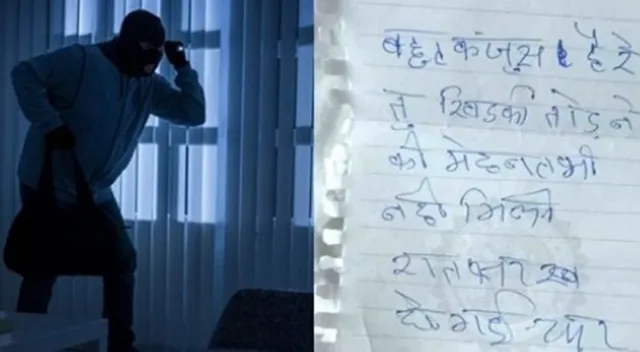 बहुत कंजुस है रे
तु खिडकी तोड़ने
की मेहनत भी
नही मिली
रात
हो गई यार